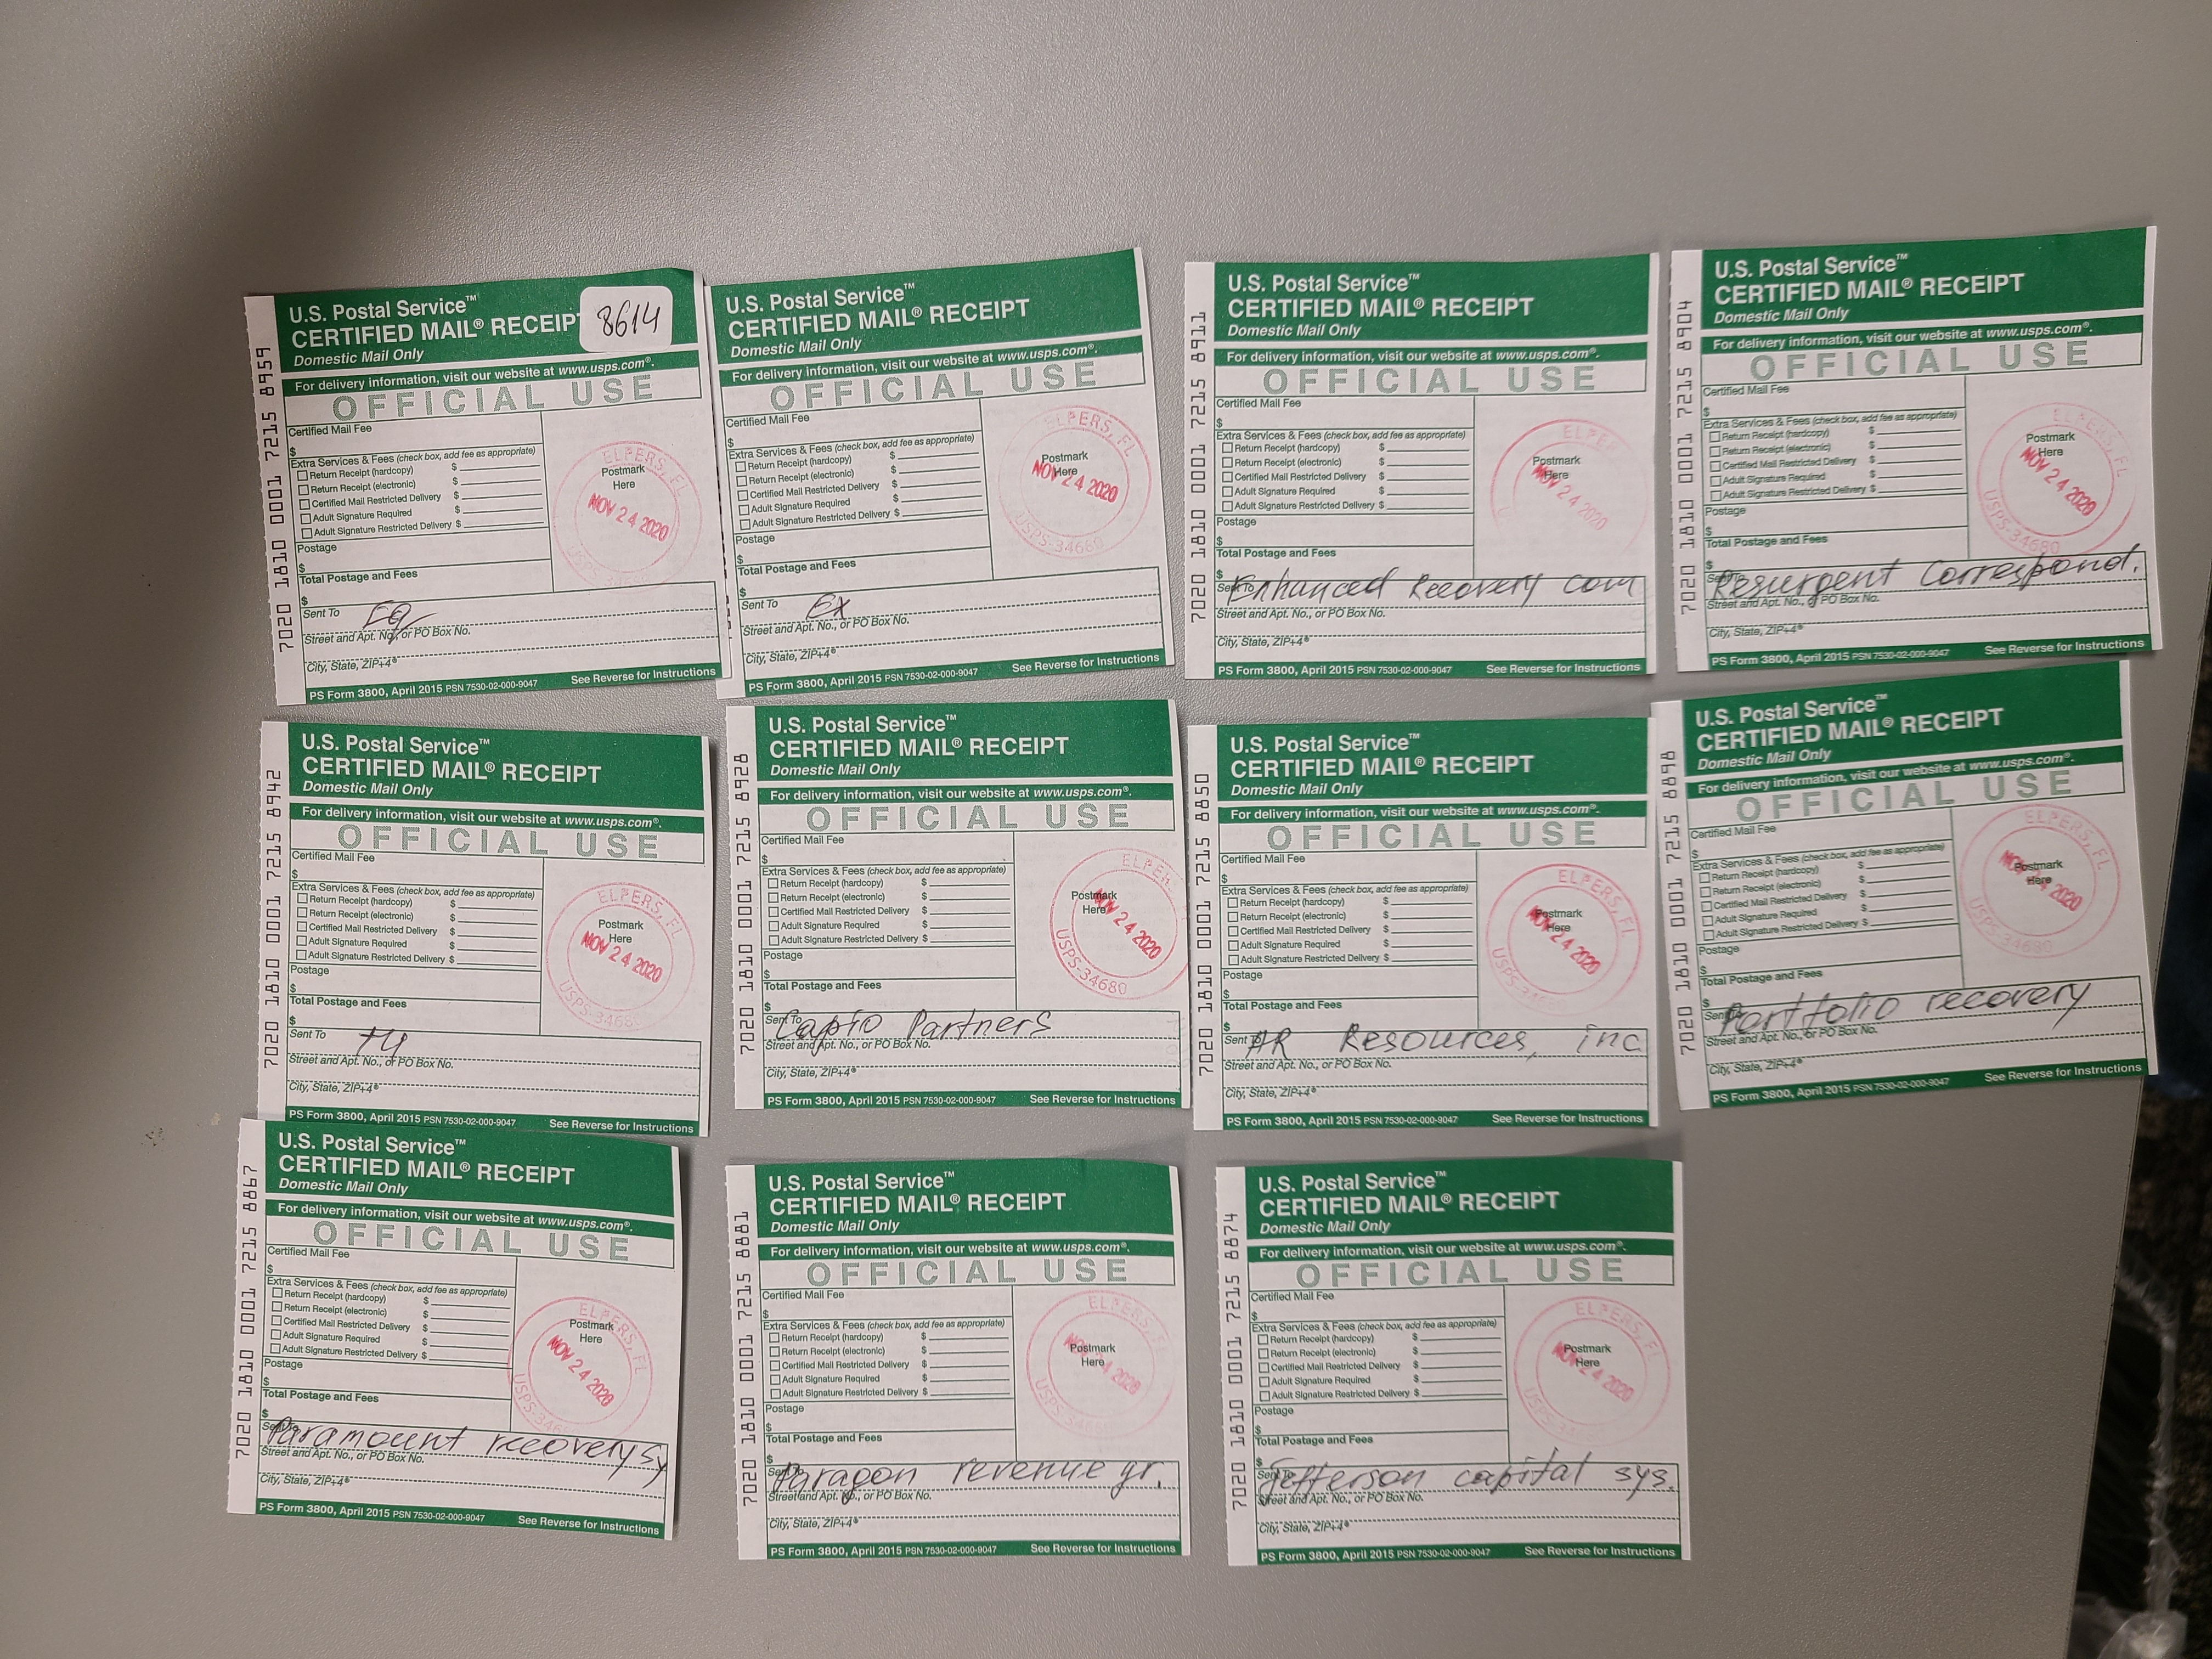 7020 1810 0001 7215 8959
U.S. Postal Service™
CERTIFIED MAIL® RECEIPT
8614
Domestic Mail Only
For delivery information, visit our website at www.usps.com®.
OFFICIAL USE
Certified Mail Fee
$
Extra Services & Fees (check box, add fee as appropriate)
Return Receipt (hardcopy) $
Return Receipt (electronic) $
Certified Mail Restricted Delivery $
Adult Signature Required $
Adult Signature Restricted Delivery $
Postage
$
Total Postage and Fees
$
Postmark
Here
ELFERS, FL
NOV 24 2020
Sent To
EQ
Street and Apt. No., or PO Box No.
City, State, ZIP+4®
PS Form 3800, April 2015 PSN 7530-02-000-9047 See Reverse for Instructions
U.S. Postal Service™
CERTIFIED MAIL® RECEIPT
Domestic Mail Only
For delivery information, visit our website at www.usps.com®.
OFFICIAL USE
Certified Mail Fee
$
Extra Services & Fees (check box, add fee as appropriate)
Return Receipt (hardcopy) $
Return Receipt (electronic) $
Certified Mail Restricted Delivery $
Adult Signature Required $
Adult Signature Restricted Delivery $
Postage
$
Total Postage and Fees
$
Postmark
Here
ELFERS, FL
NOV 24 2020
Sent To
EX
Street and Apt. No., or PO Box No.
City, State, ZIP+4®
PS Form 3800, April 2015 PSN 7530-02-000-9047 See Reverse for Instructions
7020 1810 0001 7215 8911
U.S. Postal Service™
CERTIFIED MAIL® RECEIPT
Domestic Mail Only
For delivery information, visit our website at www.usps.com®.
OFFICIAL USE
Certified Mail Fee
$
Extra Services & Fees (check box, add fee as appropriate)
Return Receipt (hardcopy) $
Return Receipt (electronic) $
Certified Mail Restricted Delivery $
Adult Signature Required $
Adult Signature Restricted Delivery $
Postage
$
Total Postage and Fees
$
Postmark
Here
ELFERS, FL
NOV 24 2020
Sent To
Enhanced Recovery com
Street and Apt. No., or PO Box No.
City, State, ZIP+4®
PS Form 3800, April 2015 PSN 7530-02-000-9047 See Reverse for Instructions
7020 1810 0001 7215 8904
U.S. Postal Service™
CERTIFIED MAIL® RECEIPT
Domestic Mail Only
For delivery information, visit our website at www.usps.com®.
OFFICIAL USE
Certified Mail Fee
$
Extra Services & Fees (check box, add fee as appropriate)
Return Receipt (hardcopy) $
Return Receipt (electronic) $
Certified Mail Restricted Delivery $
Adult Signature Required $
Adult Signature Restricted Delivery $
Postage
$
Total Postage and Fees
$
Postmark
Here
ELFERS, FL
NOV 24 2020
USPS-34680
Sent To
Resurgent Correspond.
Street and Apt. No., or PO Box No.
City, State, ZIP+4®
PS Form 3800, April 2015 PSN 7530-02-000-9047 See Reverse for Instructions
7020 1810 0001 7215 8942
U.S. Postal Service™
CERTIFIED MAIL® RECEIPT
Domestic Mail Only
For delivery information, visit our website at www.usps.com®.
OFFICIAL USE
Certified Mail Fee
$
Extra Services & Fees (check box, add fee as appropriate)
Return Receipt (hardcopy) $
Return Receipt (electronic) $
Certified Mail Restricted Delivery $
Adult Signature Required $
Adult Signature Restricted Delivery $
Postage
$
Total Postage and Fees
$
Postmark
Here
ELFERS, FL
NOV 24 2020
USPS-34680
Sent To
Street and Apt. No., or PO Box No.
City, State, ZIP+4®
PS Form 3800, April 2015 PSN 7530-02-000-9047 See Reverse for Instructions
7020 1810 0001 7215 8928
U.S. Postal Service™
CERTIFIED MAIL® RECEIPT
Domestic Mail Only
For delivery information, visit our website at www.usps.com®.
OFFICIAL USE
Certified Mail Fee
$
Extra Services & Fees (check box, add fee as appropriate)
Return Receipt (hardcopy) $
Return Receipt (electronic) $
Certified Mail Restricted Delivery $
Adult Signature Required $
Adult Signature Restricted Delivery $
Postage
$
Total Postage and Fees
$
Postmark
Here
NOV 24 2020
USPS-34680
Sent To
Capio Partners
Street and Apt. No., or PO Box No.
City, State, ZIP+4®
PS Form 3800, April 2015 PSN 7530-02-000-9047 See Reverse for Instructions
7020 1810 0001 7215 8850
U.S. Postal Service™
CERTIFIED MAIL® RECEIPT
Domestic Mail Only
For delivery information, visit our website at www.usps.com®.
OFFICIAL USE
Certified Mail Fee
$
Extra Services & Fees (check box, add fee as appropriate)
Return Receipt (hardcopy) $
Return Receipt (electronic) $
Certified Mail Restricted Delivery $
Adult Signature Required $
Adult Signature Restricted Delivery $
Postage
$
Total Postage and Fees
$
Postmark
Here
ELFERS, FL
NOV 24 2020
Sent To
AR Resources, inc
Street and Apt. No., or PO Box No.
City, State, ZIP+4®
PS Form 3800, April 2015 PSN 7530-02-000-9047 See Reverse for Instructions
7020 1810 0001 7215 8898
U.S. Postal Service™
CERTIFIED MAIL® RECEIPT
Domestic Mail Only
For delivery information, visit our website at www.usps.com®.
OFFICIAL USE
Certified Mail Fee
$
Extra Services & Fees (check box, add fee as appropriate)
Return Receipt (hardcopy) $
Return Receipt (electronic) $
Certified Mail Restricted Delivery $
Adult Signature Required $
Adult Signature Restricted Delivery $
Postage
$
Total Postage and Fees
$
Postmark
Here
ELFERS, FL
2020
USPS-34680
Sent To
Portfolio recovery
Street and Apt. No., or PO Box No.
City, State, ZIP+4®
PS Form 3800, April 2015 PSN 7530-02-000-9047 See Reverse for Instructions
7020 1810 0001 7215 8867
U.S. Postal Service™
CERTIFIED MAIL® RECEIPT
Domestic Mail Only
For delivery information, visit our website at www.usps.com®.
OFFICIAL USE
Certified Mail Fee
$
Extra Services & Fees (check box, add fee as appropriate)
Return Receipt (hardcopy) $
Return Receipt (electronic) $
Certified Mail Restricted Delivery $
Adult Signature Required $
Adult Signature Restricted Delivery $
Postage
$
Total Postage and Fees
$
Postmark
Here
ELFERS, FL
NOV 24 2020
Sent To
Paramount recovery sy
Street and Apt. No., or PO Box No.
City, State, ZIP+4®
PS Form 3800, April 2015 PSN 7530-02-000-9047 See Reverse for Instructions
7020 1810 0001 7215 8881
U.S. Postal Service™
CERTIFIED MAIL® RECEIPT
Domestic Mail Only
For delivery information, visit our website at www.usps.com®.
OFFICIAL USE
Certified Mail Fee
$
Extra Services & Fees (check box, add fee as appropriate)
Return Receipt (hardcopy) $
Return Receipt (electronic) $
Certified Mail Restricted Delivery $
Adult Signature Required $
Adult Signature Restricted Delivery $
Postage
$
Total Postage and Fees
$
Postmark
Here
ELFERS, FL
2020
Sent To
Paragon revenue gr.
Street and Apt. No., or PO Box No.
City, State, ZIP+4®
PS Form 3800, April 2015 PSN 7530-02-000-9047 See Reverse for Instructions
7020 1810 0001 7215 8874
U.S. Postal Service™
CERTIFIED MAIL® RECEIPT
Domestic Mail Only
For delivery information, visit our website at www.usps.com®.
OFFICIAL USE
Certified Mail Fee
$
Extra Services & Fees (check box, add fee as appropriate)
Return Receipt (hardcopy) $
Return Receipt (electronic) $
Certified Mail Restricted Delivery $
Adult Signature Required $
Adult Signature Restricted Delivery $
Postage
$
Total Postage and Fees
$
Postmark
Here
ELFERS, FL
2020
Sent To
Jefferson capital sys.
Street and Apt. No., or PO Box No.
City, State, ZIP+4®
PS Form 3800, April 2015 PSN 7530-02-000-9047 See Reverse for Instructions